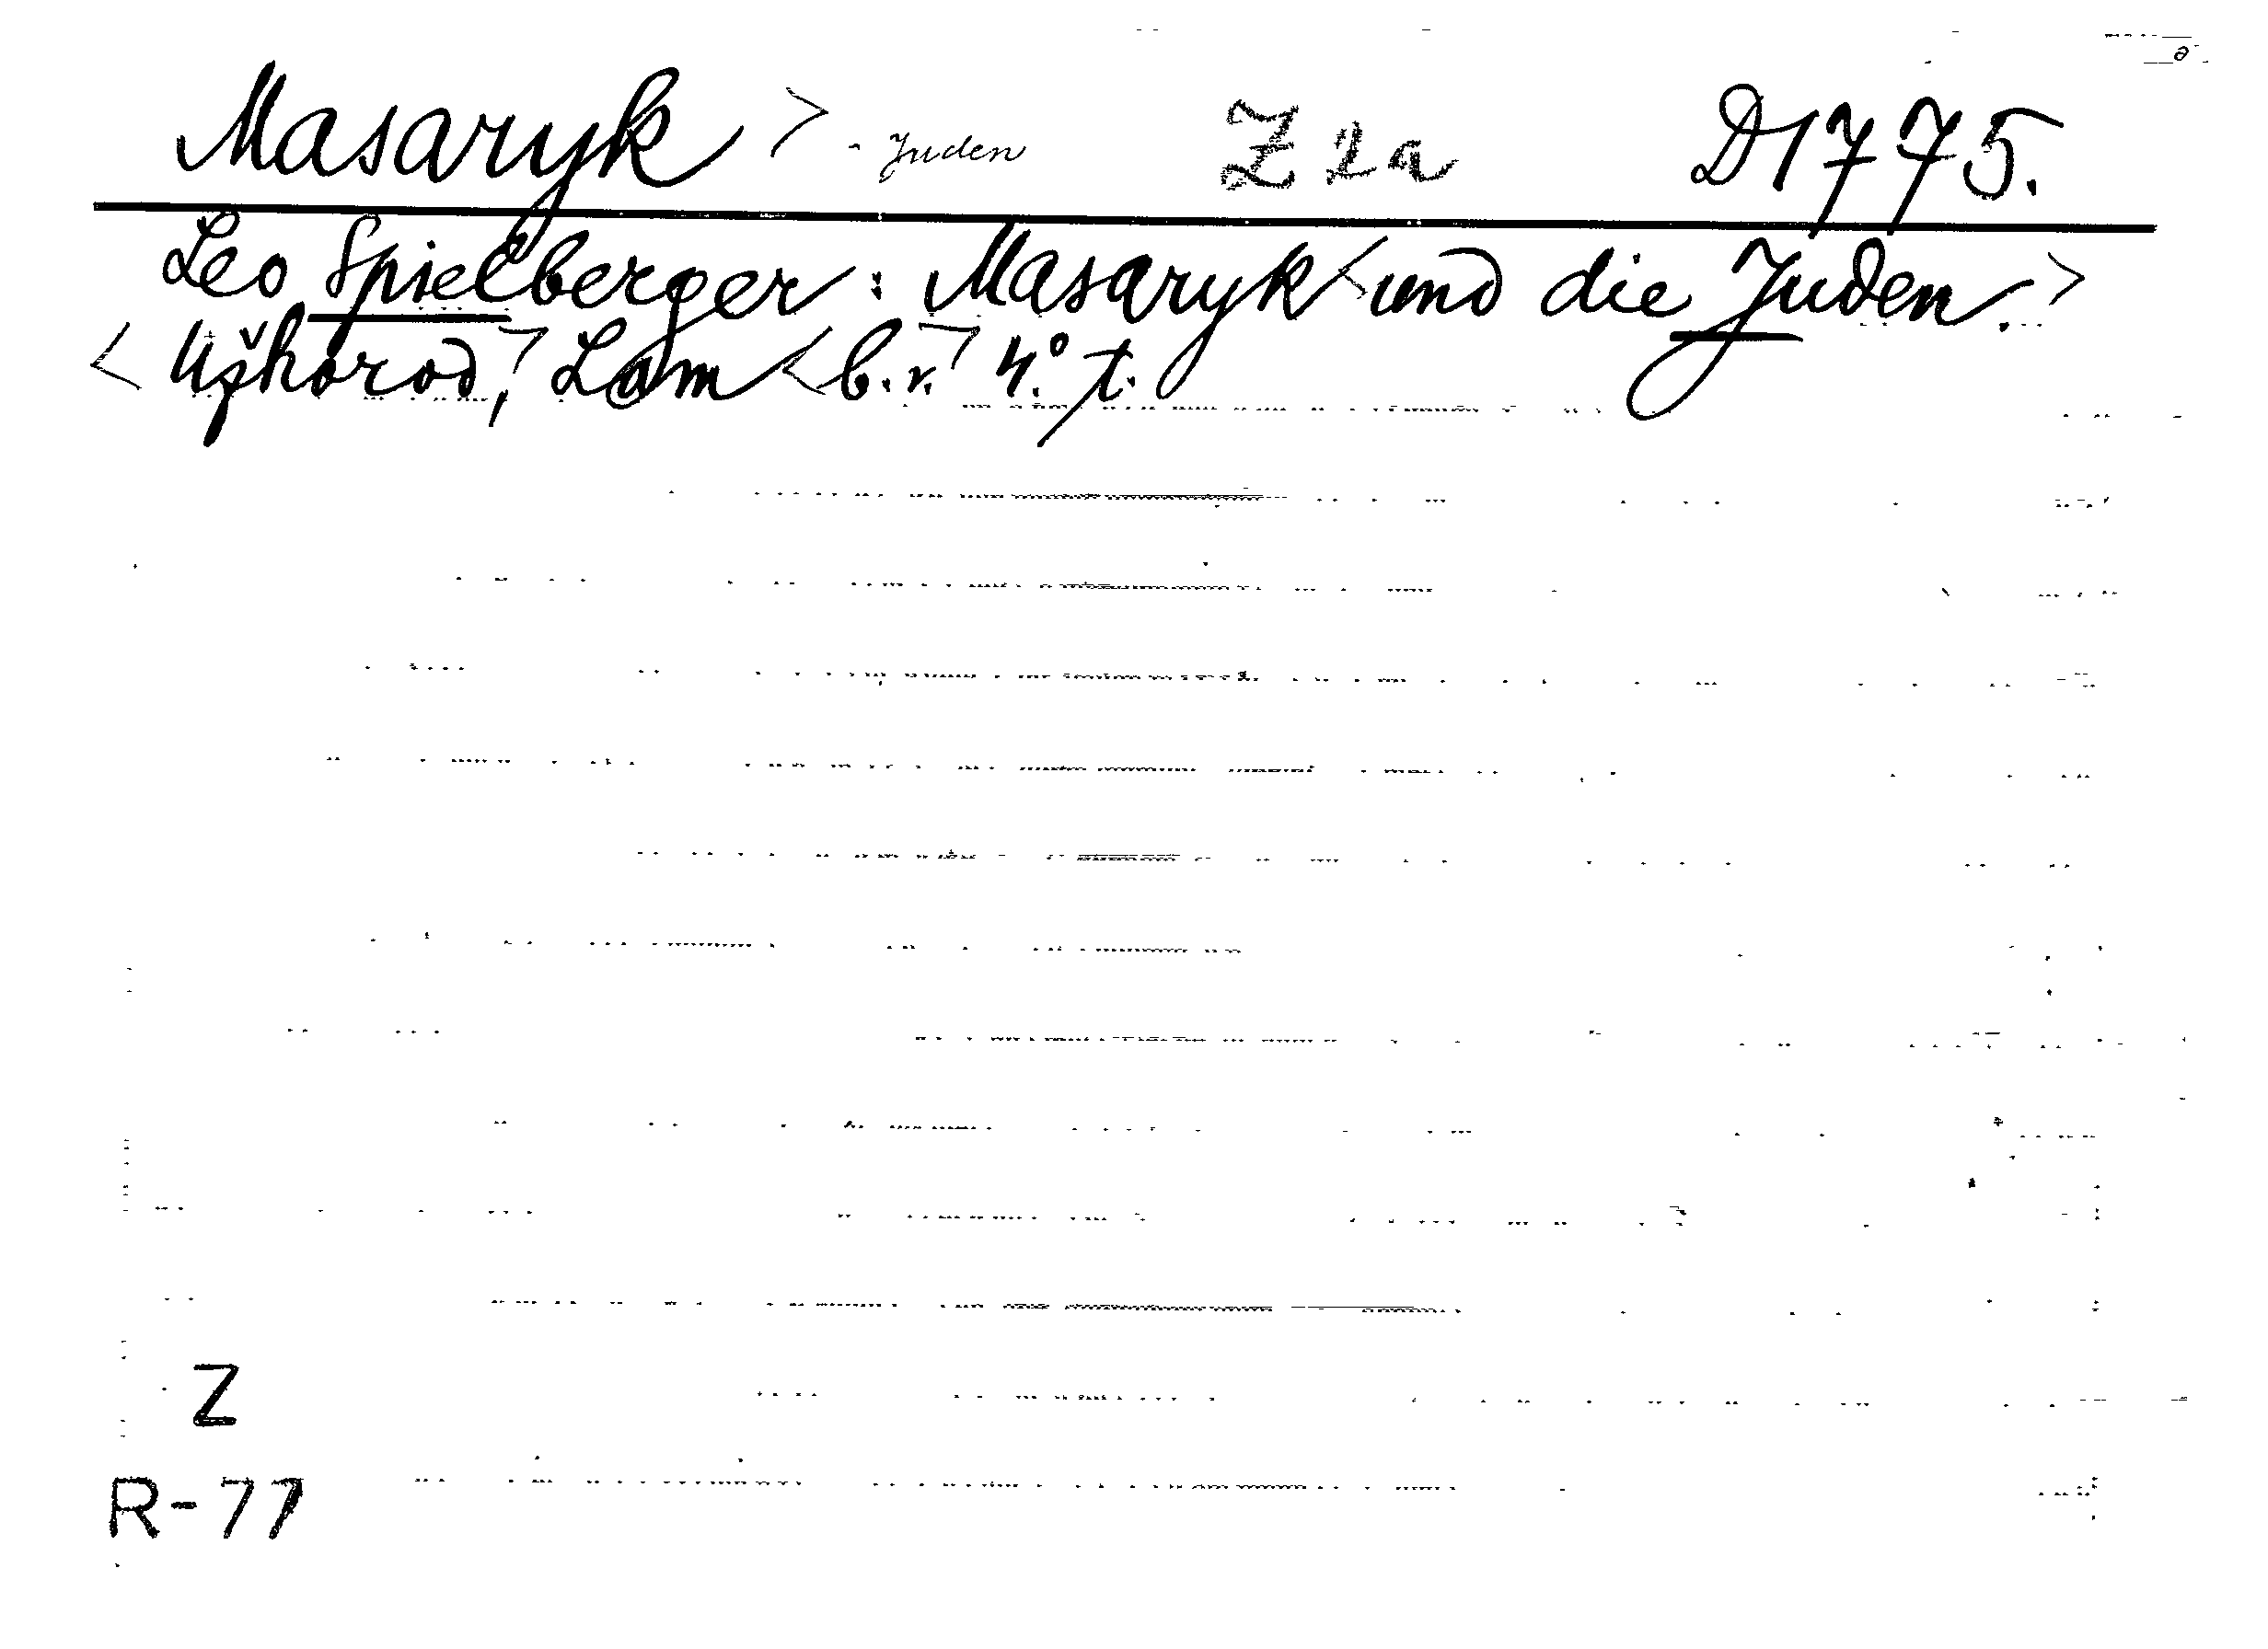 Masaryk > - Juden Z 2a D1775.
Leo Spielberger: Masaryk < und die Juden. >
< Užhorod, > Lam < b.r. > 4.° t.
Z
R-77